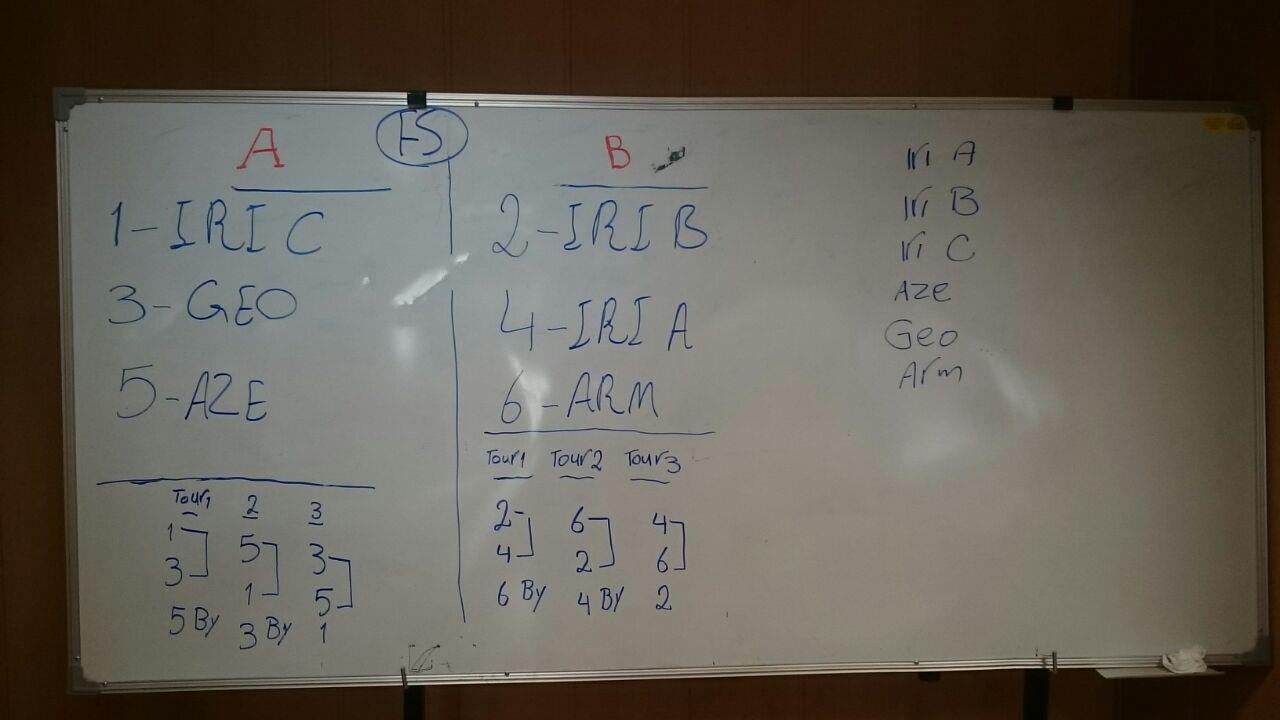 FS
A
1-IRI C
3-GEO
5-AZE
Tour1 2 3
1 5 3
3 1 5
5 By 3 By 1
B
2-IRI B
4-IRI A
6-ARM
Tour1 Tour2 Tour3
2 6 4
4 2 6
6 By 4 By 2
Iri A
Iri B
Iri C
AZE
Geo
Arm